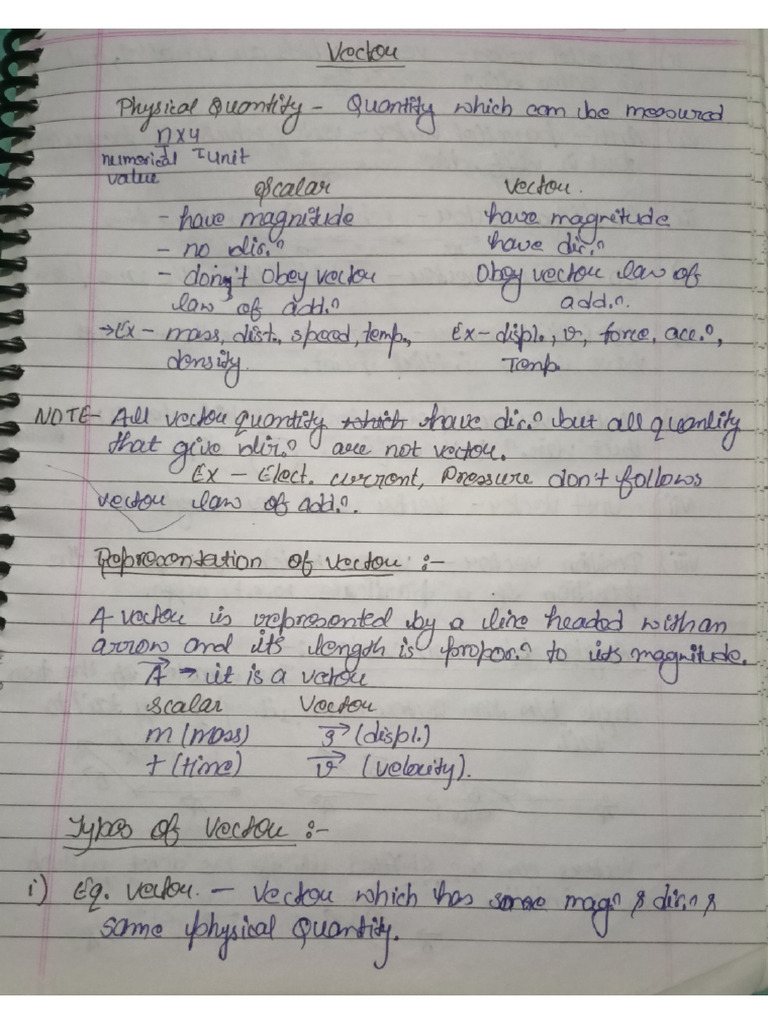 Vector
Physical Quantity - Quantity which can be measured
n×u
numerical unit
value
Scalar Vector.
- have magnitude have magnitude
- no dir.n have dir.n
- don't obey vector Obey vector law of
law of add.n add.n.
→ Ex - mass, dist., speed, temp., Ex - displ., v, force, acc.n,
density. Temp.
NOTE - All vector quantity which have dir.n but all quantity
that give dir.n are not vector.
Ex - Elect. current, Pressure don't follows
vector law of add.n.
Representation of vector :-
A vector is represented by a line headed with an
arrow and its length is propor.n to its magnitude.
A → it is a vector
scalar Vector
m (mass) s (displ.)
t (time) v (velocity).
Types of Vector :-
i) Eq. vector. - Vector which has same magn & dir.n &
same physical Quantity.